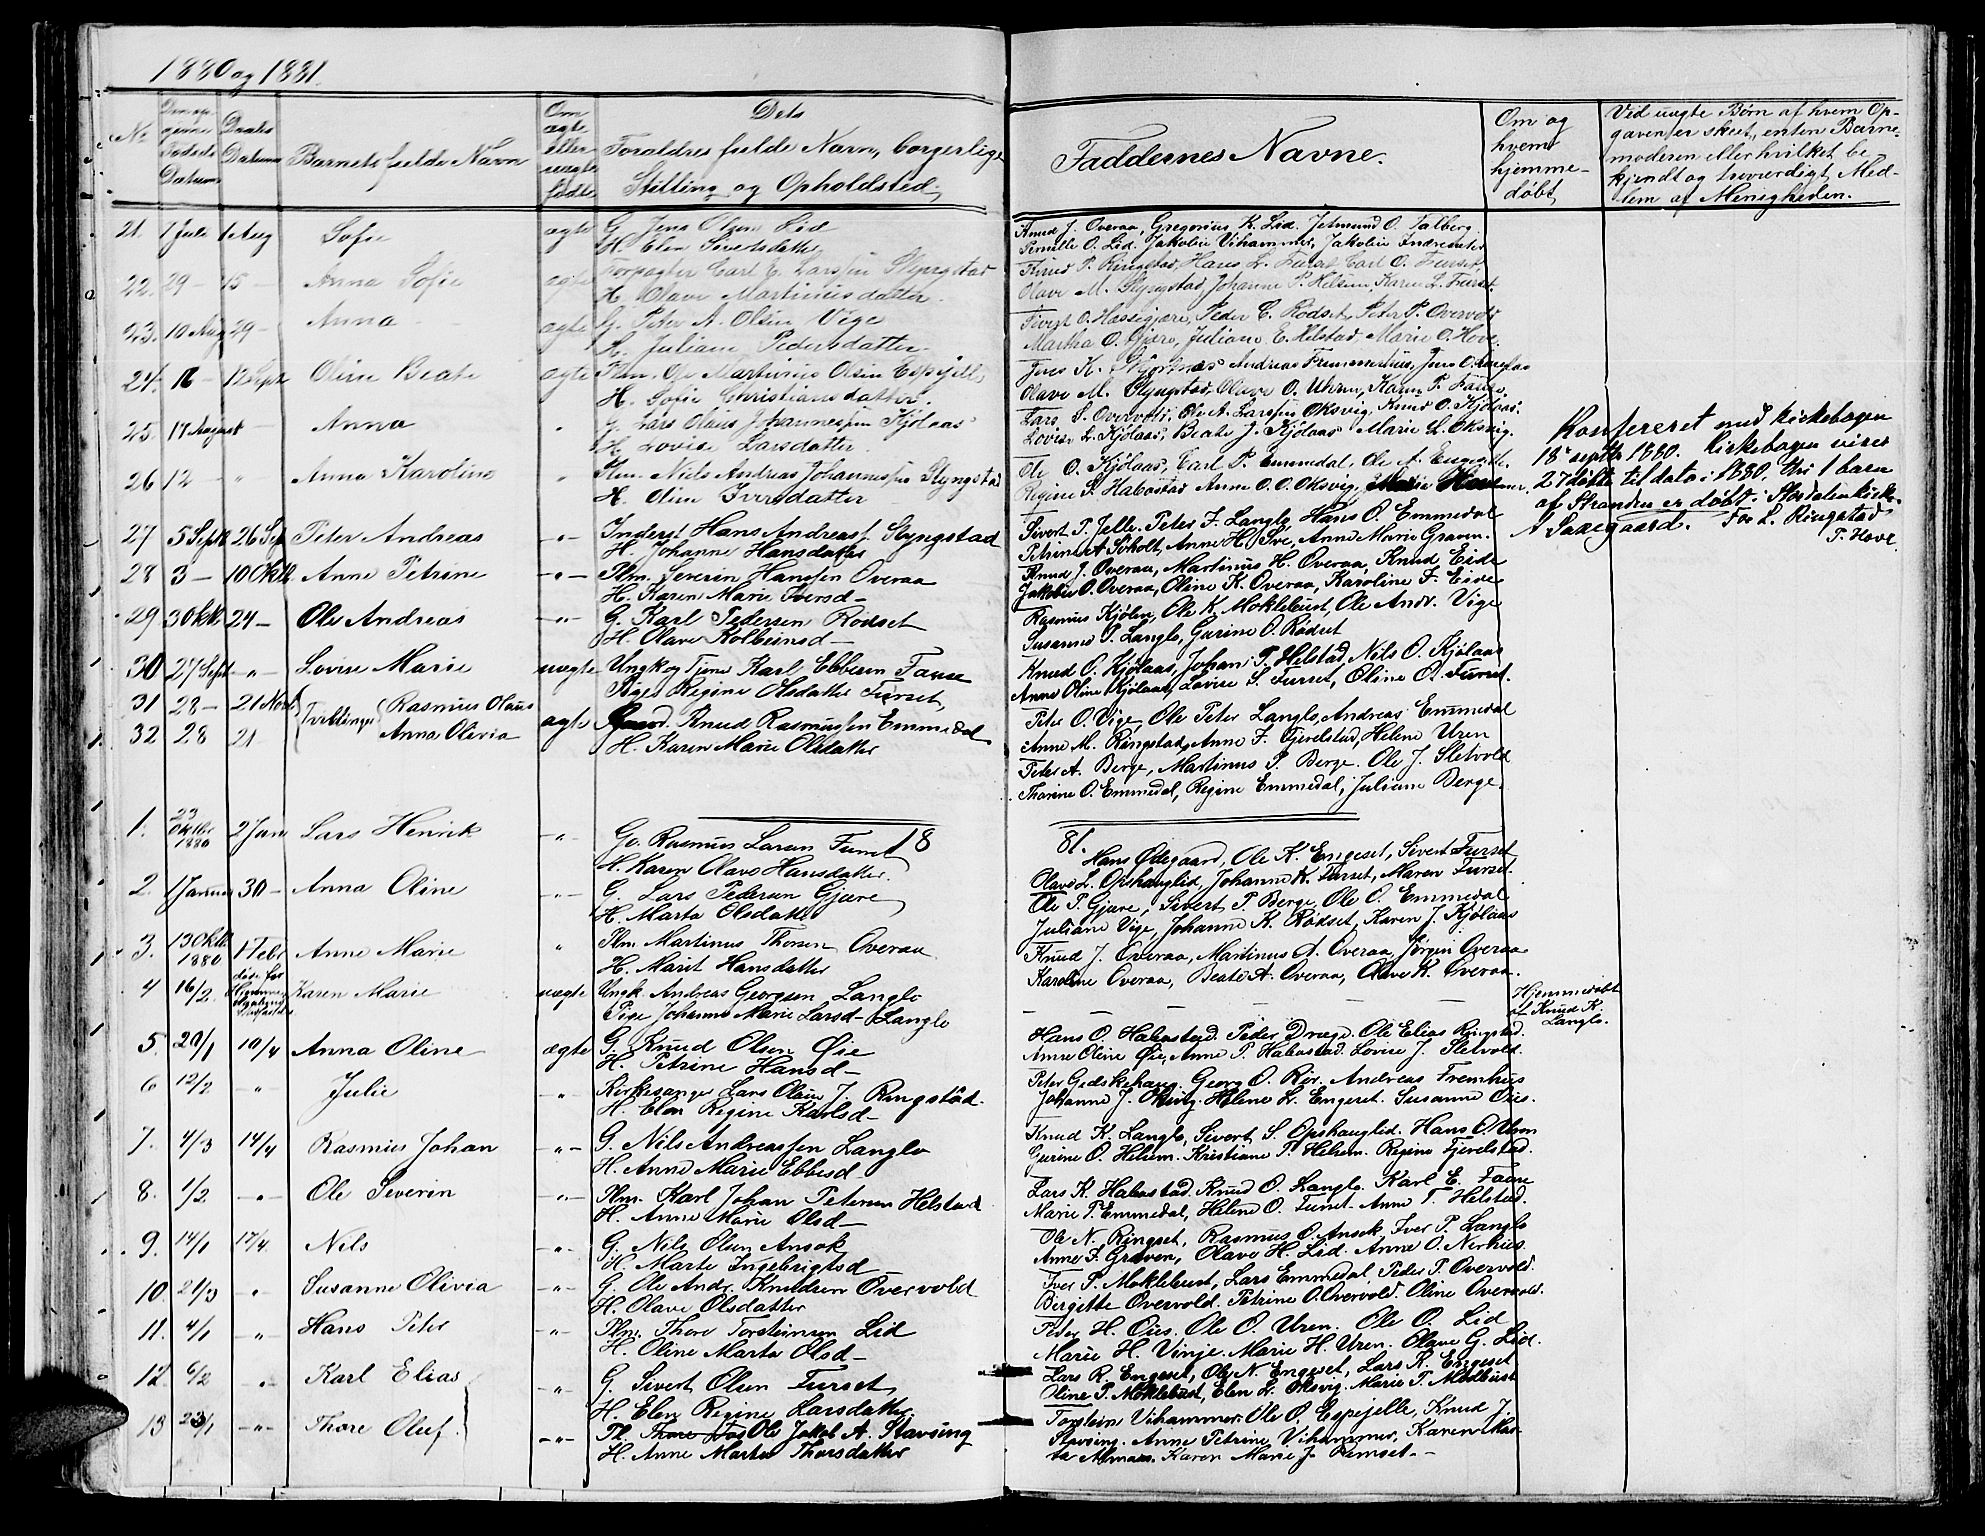 1880 og 1881.
No
Den opgivne Fødsels Datum
Daabs Datum
Barnets fulde Navn
Om ægte eller uægte fødte
Dets
Forældres fulde Navn, borgerlige
Stilling og Opholdsted.
Faddernes Navne.
Om og hvem hjemmedøbt
Ved uægte Børn af hvem Opgaven er skeet, enten Barnemoderen eller hvilket bekjendt og troværdigt Medlem af Menigheden.
21. 1 Juli 1 Aug Sofie ægte G. Jens Olsen Lid
H. Elen Sivertsdatter
Knud J. Overaa, Gregorius K. Lid. Jetmund O. Talberg.
Pernille O. Lid. Jakobie Vihammer, Jakobie
22. 29 — 15 — Anna Sofie ægte Forpagter Carl E. Larssen Slyngstad
H. Olave Martinusdatter.
Knud P. Ringstad, Hans L. Furset, Carl O. Furset,
Olave M. Slyngstad, Johanne P. Helsem, Karen L. Furset.
23. 10 Aug 29 — Anna ægte G. Peter A. Olsen Vige
H. Juliane Pedersdatter.
Sivert O. Hassegjære, Peder C. Rødset, Peter P. Overvold
Martha O. Gjære, Juliane E. Helstad, Marie O. Hove.
24. 12 Sept Oline Beate ægte Plm. Ole Martinius Olsen Espejell
H. Sofie Christiansdatter.
Olave M. Slyngstad, Olave O. Uhren, Karen P. Fause.
25. 17 August — Anna " G. Lars Olaus Johannessen Kjølaas
H. Lovise Larsdatter
Lars S. Overvold, Ole A. Larssen Oksvig, Knud O. Kjølaas.
Lovise L. Kjølaas, Beate J. Kjølaas Marie L. Oksvig.
26 12 — " Anna Karoline " Plm. Niels Andreas Johannessen Slyngstad
H. Oline Iversdatter
Ole O. Kjølaas, Carl P. Emmedal, Ole A. Engeset.
Regine S. Habostad Anne O. O. Oksvig,
Konfereret med kirkebogen
18 septbr 1880. Kirkebogen viser
27 døbte til dato i 1880, thi 1 barn
af Stranden er døbt i Stordalen kirke.
A Saxegaard. For L. Ringstad
P. Hove.
27 5 Sept 26 Sep Peter Andreas —"— Inderst Hans Andreas P. Slyngstad
H. Johanne Hansdatter
Sivert P. Jelle. Peter F. Langlo, Hans O. Emmedal
Petrine A Søholt, Anne H. Sve, Anne Marie Graven.
28 3 — 10 Oktb. Anne Petrine —"— Plm. Severin Hanssen Overaa
H. Karen Marie Iversd —
Knud J. Overaa, Martinus H. Overaa, Knud Eide
Jakobie O. Overaa, Oline K. Overaa, Karoline F. Eide
29 3 Okt. 24 — Ole Andreas —"— G. Karl Pedersen Rødset
H. Olave Kolbeinsd —
Rasmus Kjølen, Ole K. Moklebust, Ole Andr. Vige
Susanne P. Langlo, Gurine O. Rødset
30 27 Sept. —"— Lovise Marie uægte Ungk og Tjener Karl Ebbesen Fause
Pige Regine Olsdatter Furset
Knud O. Kjølaas, Johan P. Helstad, Nils O. Kjølaas
Anne Oline Kjølaas, Lovise S. Furset, Oline O. Furset.
31 28 — 21 Novb. Tvillinger Rasmus Olaus
32 28 21 Anna Olivia ægte Gaard. Knud Rasmussen Emmedal
H. Karen Marie Olsdatter
Peter O. Vige, Ole Peter Langlo, Andreas Emmedal
Anne M. Ringstad, Anne F. Fjerelstad, Helene Uren
Peter A. Berge, Martinus P. Berge. Ole J. Sletvold
Thorine O. Emmedal, Regine Emmedal, Juliane Berge.
1881.
1. 23 Oktbr 1880 2 Jan Lars Henrik —"— G. Rasmus Larsen Furset
H. Karen Olave Hansdatter.
Hans Ødegaard, Ole K. Engeset, Sivert Furset
Olave L. Opshauglid, Johanne K. Furset, Maren Furset.
2. 1 Januar 30 — Anna Oline —"— G. Lars Pedersen Gjære
H. Marta Olsdatter
Ole P. Gjære, Sivert P. Berge, Ole O. Emmedal
Juliane Vige, Johanne K. Rødset, Karen J. Kjølaas
3. 13 Oktb. 1880 1 Febr Anne Marie " Plm Martinus Thorsen Overaa
H. Marit Hansdatter
Knud J. Overaa, Martinus A. Overaa, Jørgen Overaa
Karoline Overaa, Beate A. Overaa, Olave K. Overaa.
4 16/2 Karen Marie uægte Ungk. Andreas Georgsen Langlo
Pige Johanne Marie Larsd — Langlo
Hjemmedøbt
af Knud K.
Langlo.
5. 20/1 10/4 Anna Oline ægte G. Knud Olsen Øie
H. Petrine Hansd —
Hans O. Habostad. Peder Drage. Ole Elias Ringstad.
Anne Oline Øie, Anne P. Habostad. Lovise J. Sletvold.
6 12/2 " Julie " Kirkesanger Lars Olaus J. Ringstad.
H. Elen Regine Karlsd —
Peter Gedskehaug. Georg O. Rør. Andreas Fremhus
Johanne J. Oksvig. Helene L. Engeset. Susanne Oies.
7. 4/3 14/4 Rasmus Johan —"— G. Nils Andreassen Langlo
H. Anne Marie Ebbesd
Knud K. Langlo, Sivert S. Opshauglid. Hans O. Uren
Gurine O. Helsem. Kristiane P. Helsem. Regine Fjerelstad.
8. 1/2 —"— Ole Severin —"— Plm. Karl Johan Petersen Helstad
H. Anne Marie Olsd —
Lars K. Habostad. Knud O. Langlo. Karl E. Fause
Marie P. Emmedal, Helene O. Furset. Anne T. Helstad.
9. 14/1 17/4. Nils —"— G. Nils Olsen Ansok
H. Marte Ingebrigtsd
Ole N. Ringset, Rasmus O. Ansok, Iver P. Langlo
Anne F. Graven, Olave H. Lid. Anne O. Nerhus.
10. 21/3 " Susanne Olivia —"— G. Ole Andr. Knudsen Overvold
H. Olave Olsdatter
Iver P. Moklebust, Lars Emmedal, Peder P. Overvold.
Birgitte Overvold. Petrine O. Overvold. Oline Overvold.
11. 4/1 —"— Hans Peter —"— Plm. Thore Torsteinsen Lid
H. Oline Marta Olsd —
Peder H. Oies. Ole O. Uren. Ole O. Lid
Marie H. Vinje. Marie H. Uren. Olave G. Lid.
12. 6/2 " Karl Elias —"— G. Sivert Olsen Furset
H. Elen Regine Larsdatter
Lars R. Engeset, Ole N. Engeset, Lars K. Engeset
Oline P. Moklebust, Elen L. Oksvig. Marie P. Moklebust
13 23/1 —"— Thore Oluf. —"— Pl. Ole Jakob A. Stavseng
H. Anne Marta Thorsdatter
Torstein Vihammer. Ole O. Espejelle, Knud J.
Stavseng. Anne Petrine Vihammer, Karen Mar-
ta Almaas. Karen Marie J. Remset. —